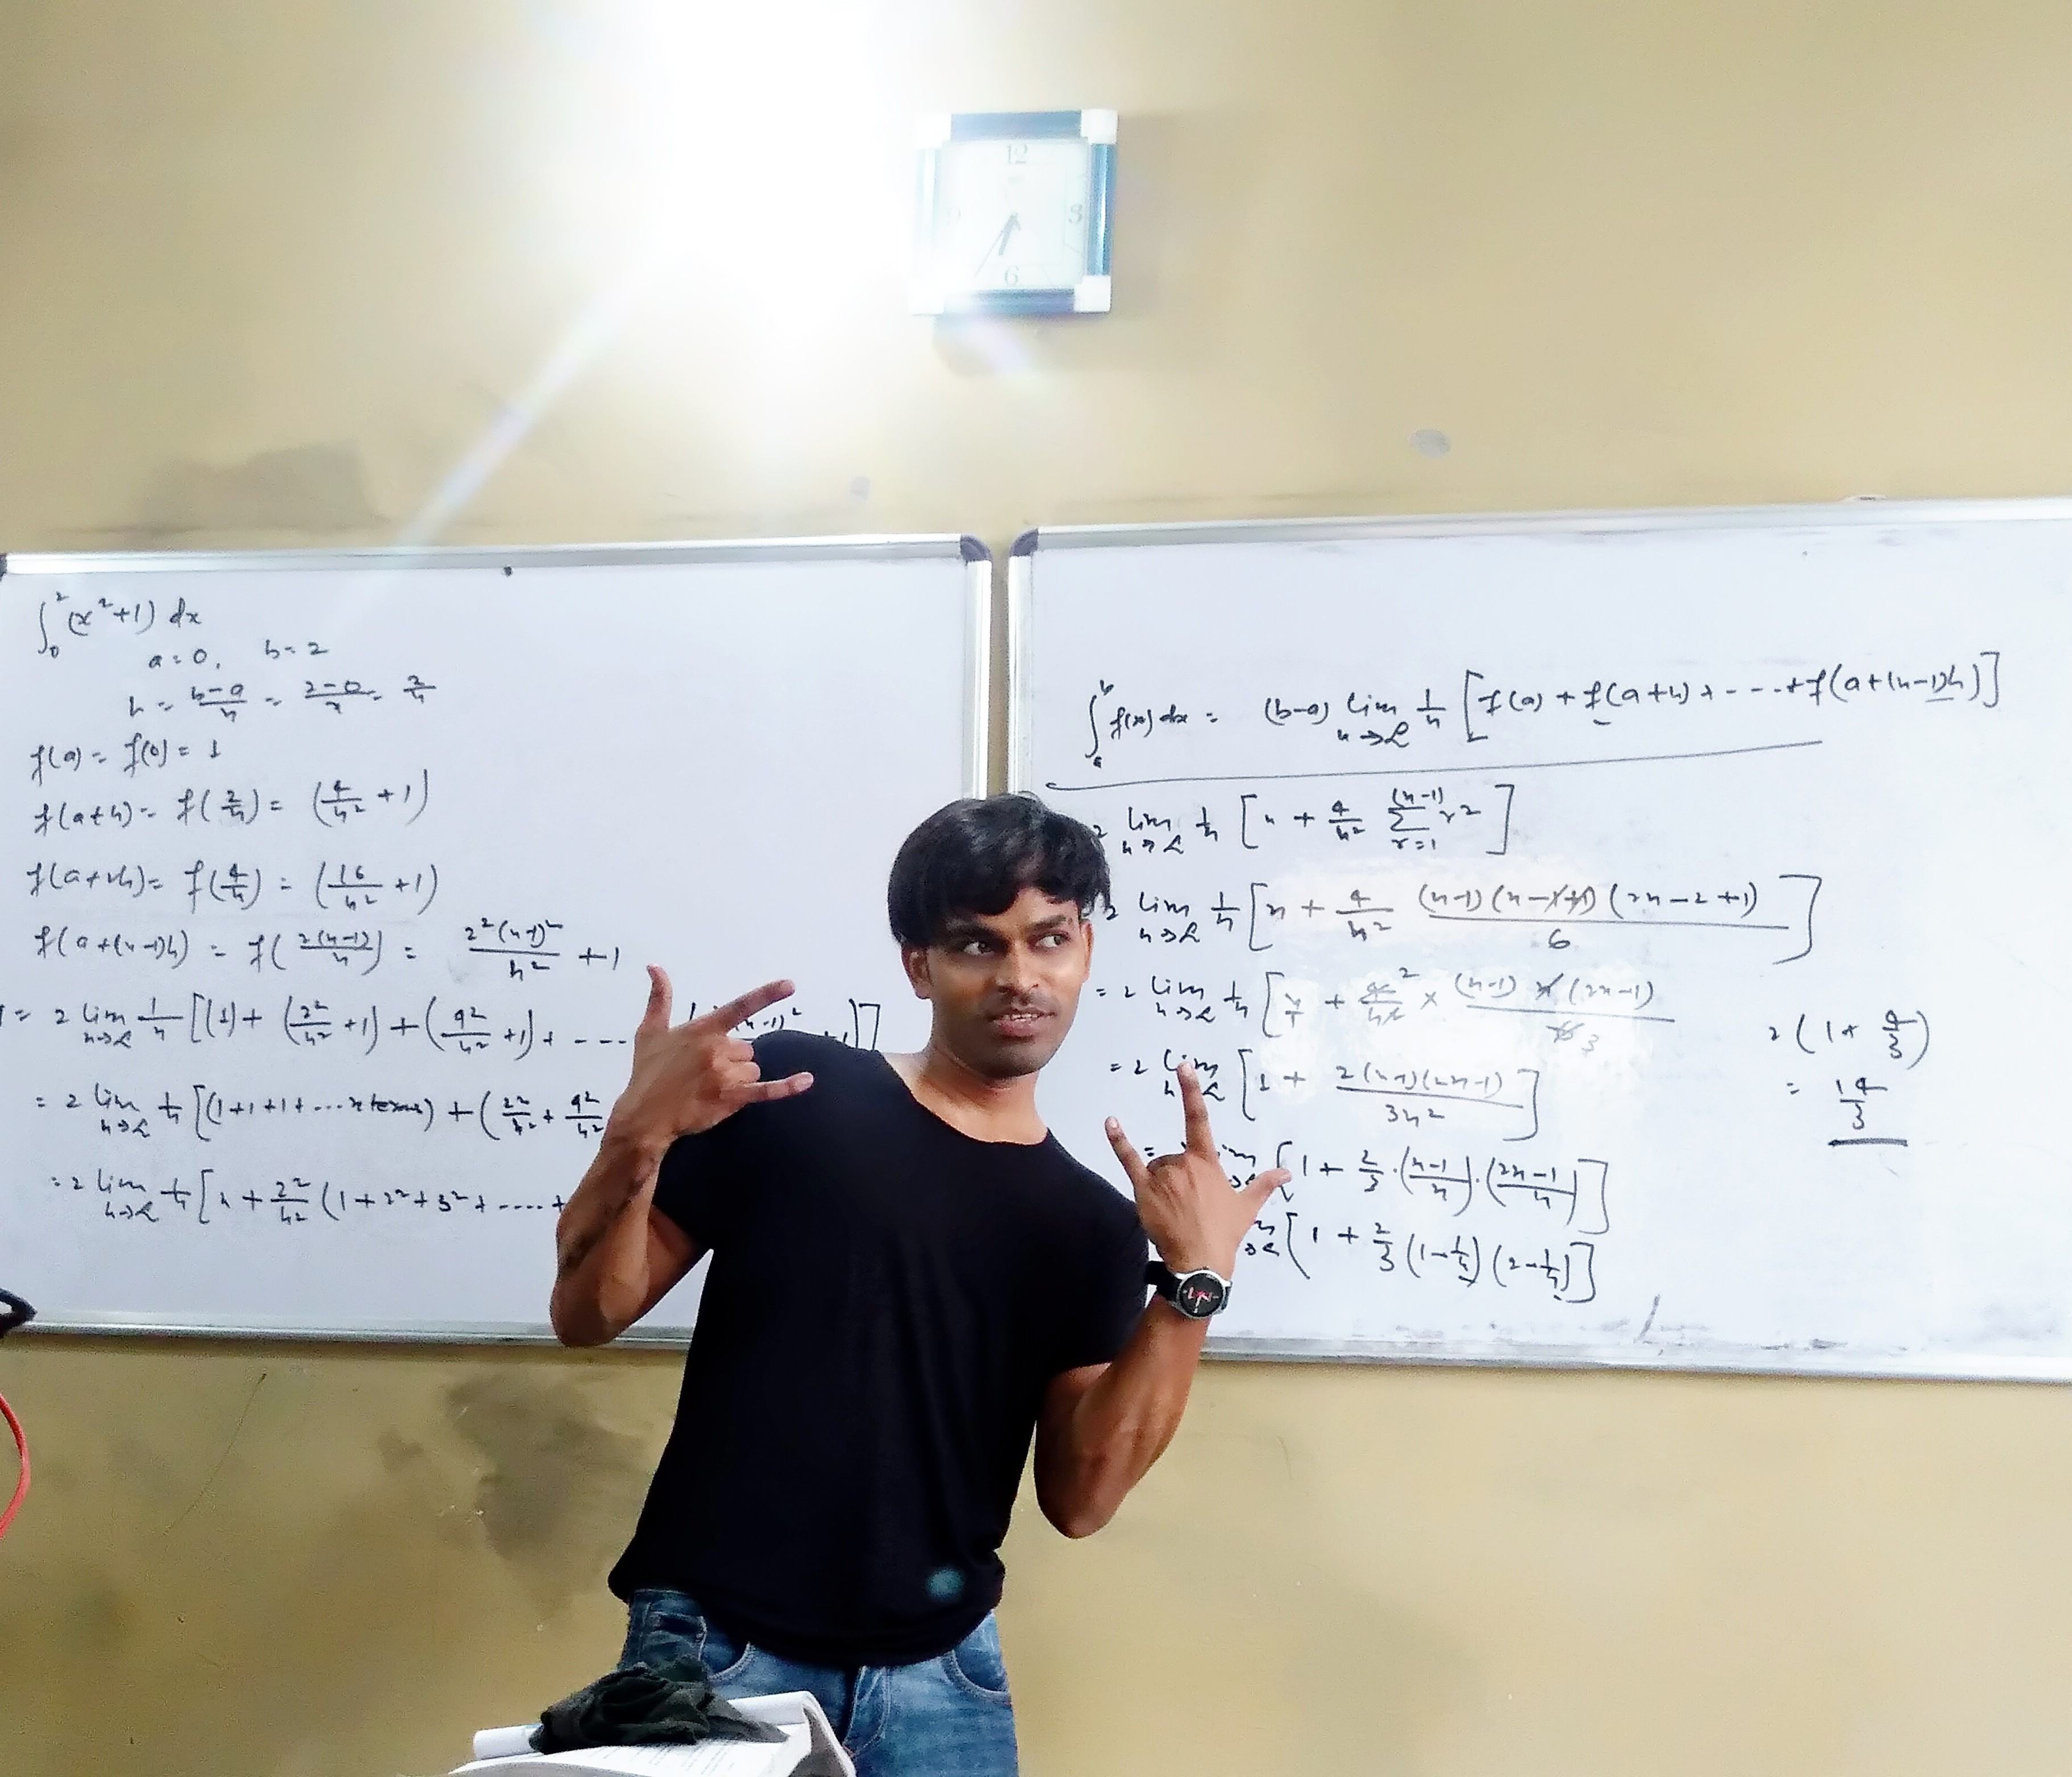 12
3
6
∫₀² (x²+1) dx
a=0, b=2
h = (b-a)/n = (2-0)/n = 2/n
f(a) = f(0) = 1
f(a+h) = f(2/n) = (4/n² + 1)
f(a+2h) = f(4/n) = (16/n² + 1)
f(a+(n-1)h) = f(2(n-1)/n) = 2²(n-1)²/n² + 1
= 2 lim n→∞ 1/n [(1) + (2²/n² + 1) + (4²/n² + 1) + ---- (n-1)² ]
= 2 lim n→∞ 1/n [(1+1+1+...n terms) + (2²/n² + 4²/n²
= 2 lim n→∞ 1/n [n + 2²/n² (1+2²+3²+ ----+
∫ₐᵇ f(x) dx = (b-a) lim n→∞ 1/n [f(a) + f(a+h) + ---- + f(a+(n-1)h)]
2 lim n→∞ 1/n [n + 4/n² Σ r=1 (n-1) r²]
2 lim n→∞ 1/n [n + 4/n² (n-1)(n-1+1)(2n-2+1)/6]
= 2 lim n→∞ 1/n [n/1 + 4 2/n² × (n-1) n (2n-1)/6 3]
= 2 lim n→∞ [1 + 2(n-1)(2n-1)/3n²]
= [1 + 2/3 · (n-1/n) · (2n-1/n)]
[1 + 2/3 (1-1/n) (2-1/n)]
2 (1 + 4/3)
= 14/3